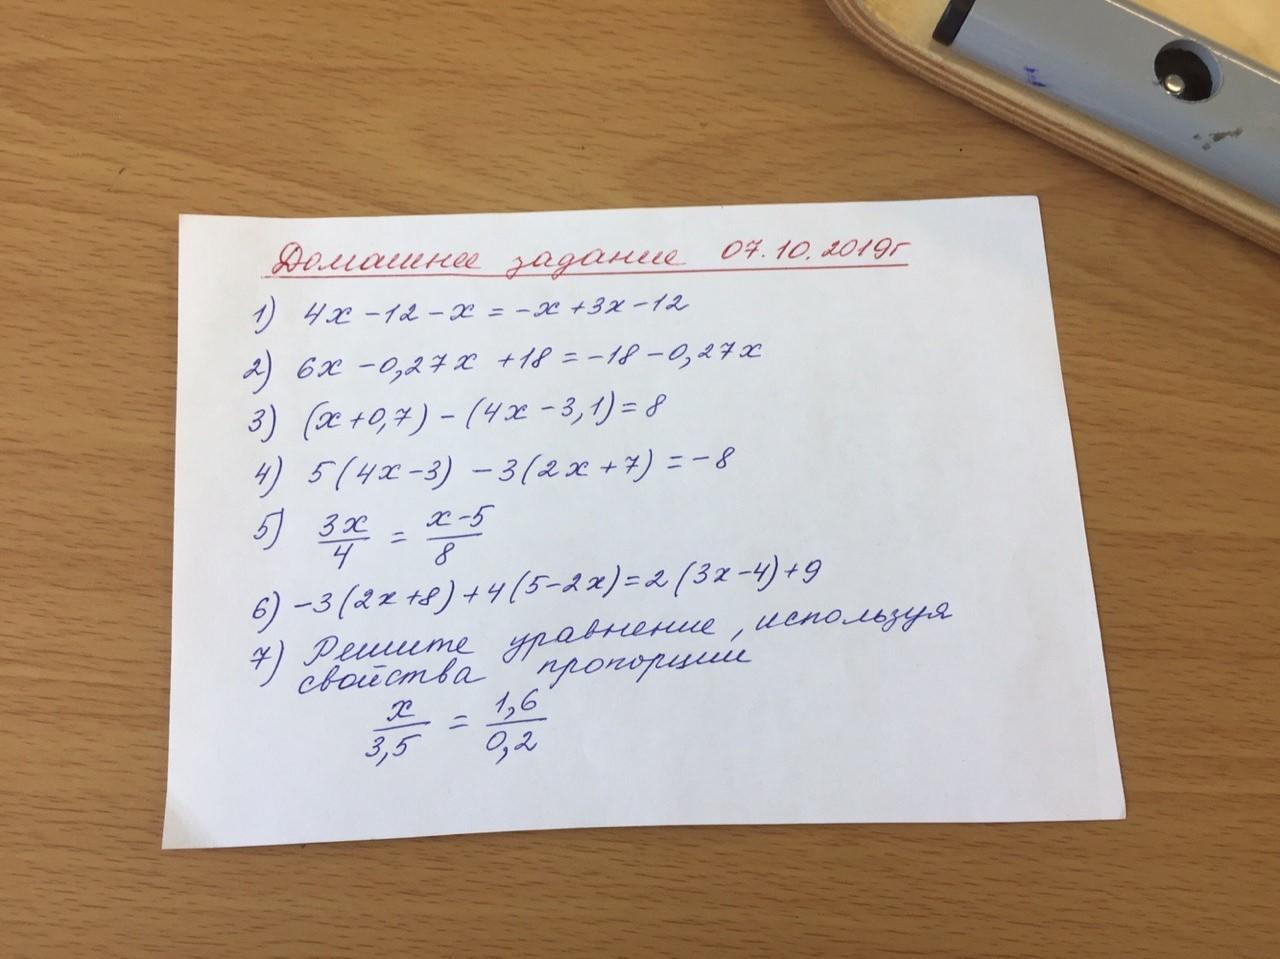 Домашнее задание 07.10.2019г
1) 4x - 12 - x = -x + 3x - 12
2) 6x - 0,27x + 18 = -18 - 0,27x
3) (x + 0,7) - (4x - 3,1) = 8
4) 5(4x - 3) - 3(2x + 7) = -8
5) 3x/4 = x-5/8
6) -3(2x + 8) + 4(5 - 2x) = 2(3x - 4) + 9
7) Решите уравнение, используя
свойства пропорции
x/3,5 = 1,6/0,2